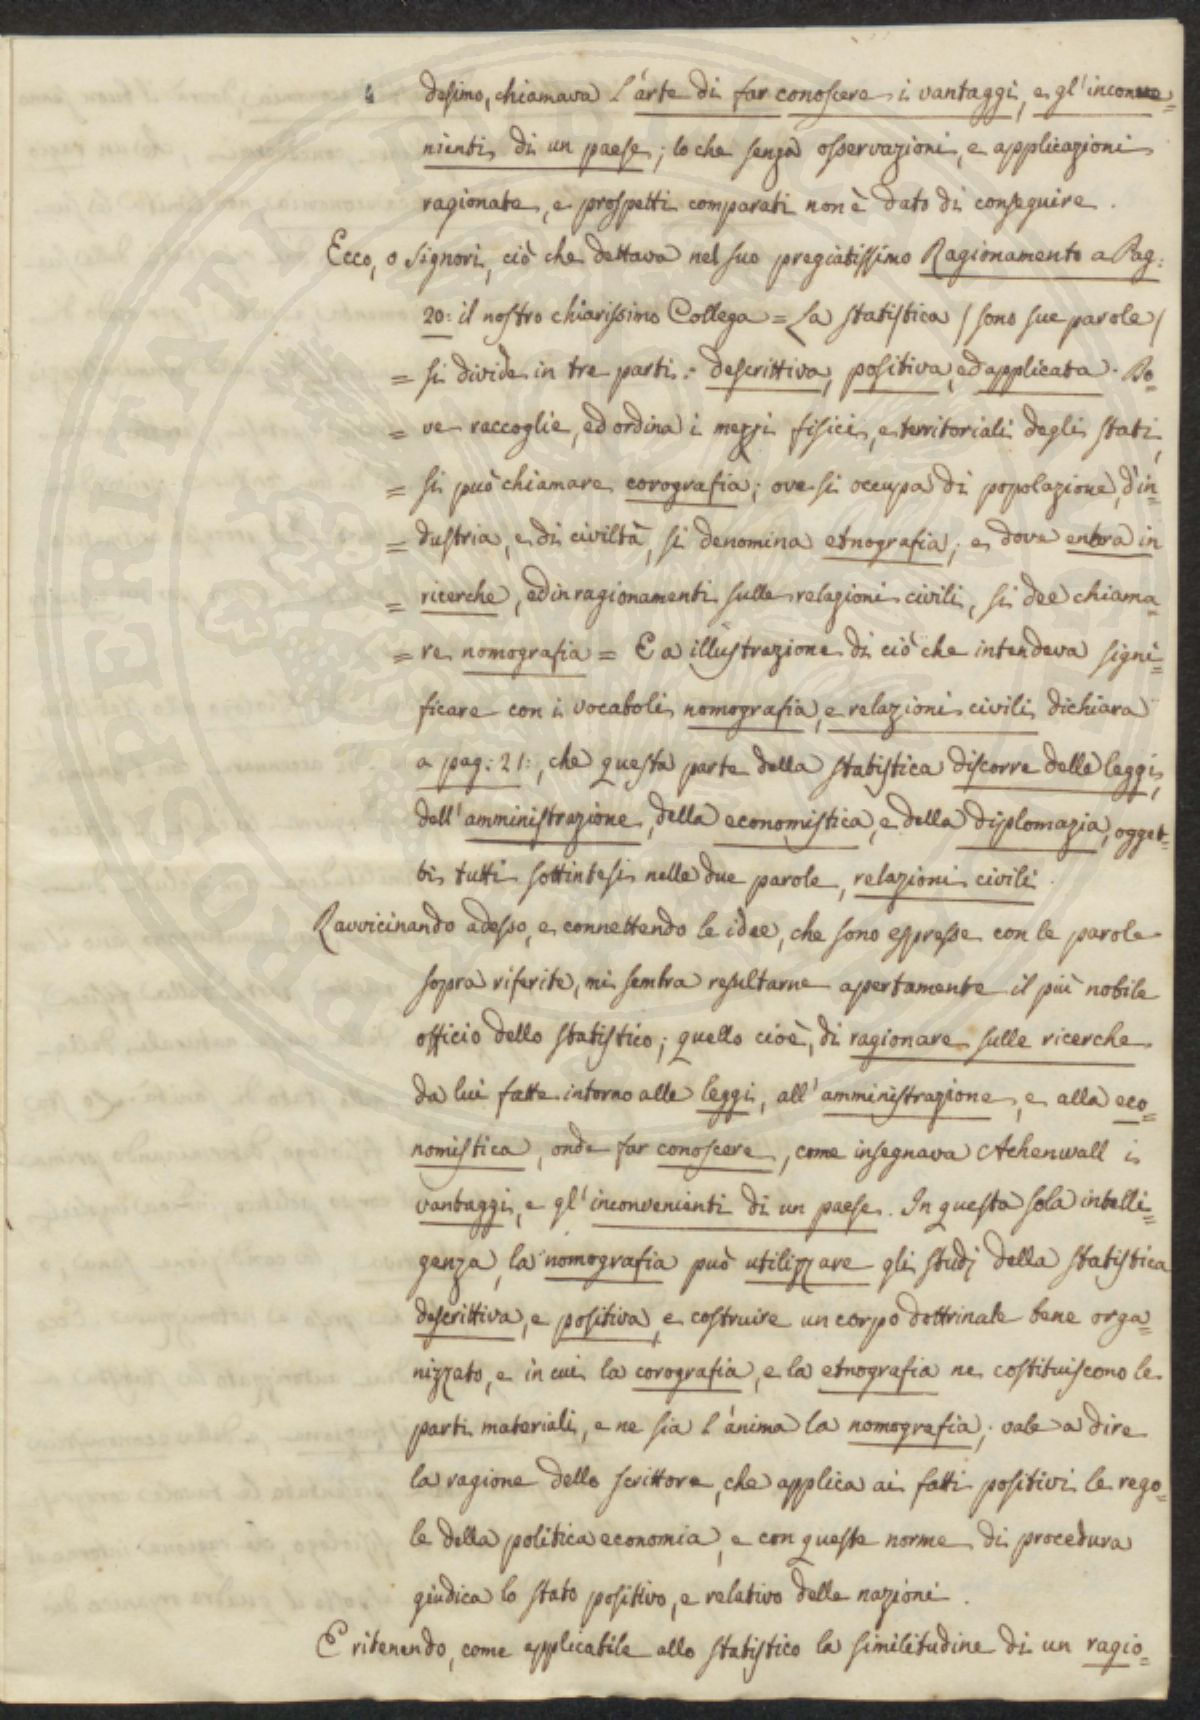 4 desimo, chiamava l'arte di far conoscere i vantaggi, e gl'inconve=
nienti di un paese; lo che senza osservazioni, e applicazioni
ragionate, e prospetti comparati non è dato di conseguire.
Ecco, o Signori, ciò che dettava nel suo pregiatissimo Ragionamento a Pag:
20: il nostro chiarissimo Collega = La statistica / sono sue parole /
= si divide in tre parti: descrittiva, positiva, ed applicata. Do=
= ve raccoglie, ed ordina i mezzi fisici, e territoriali degli stati,
= si può chiamare corografia; ove si occupa di popolazione, d'in=
= dustria, e di civiltà, si denomina etnografia; e dove entra in
= ricerche, ed in ragionamenti sulle relazioni civili, si dee chiama=
= re nomografia = E a illustrazione di ciò che intendeva signi=
ficare con i vocaboli nomografia, e relazioni civili dichiara
a pag: 21:, che questa parte della statistica discorre delle leggi,
dell'amministrazione, della economistica, e della diplomazia, ogget=
ti tutti sottintesi nelle due parole, relazioni civili.
Ravvicinando adesso, e connettendo le idee, che sono espresse con le parole
sopra riferite, mi sembra resultarne apertamente il più nobile
officio dello statistico; quello cioè, di ragionare sulle ricerche
da lui fatte intorno alle leggi, all'amministrazione, e alla eco=
nomistica, onde far conoscere, come insegnava Achenwall i
vantaggi, e gl'inconvenienti di un paese. In questa sola intelli=
genza, la nomografia può utilizzare gli studj della statistica
descrittiva, e positiva, e costruire un corpo dottrinale bene orga=
nizzato, e in cui la corografia, e la etnografia ne costituiscono le
parti materiali, e ne sia l'anima la nomografia; vale a dire
la ragione dello scrittore, che applica ai fatti positivi le rego=
le della politica economia, e con queste norme di procedura
giudica lo stato positivo, e relativo delle nazioni.
E ritenendo, come applicabile allo statistico la similitudine di un ragio=